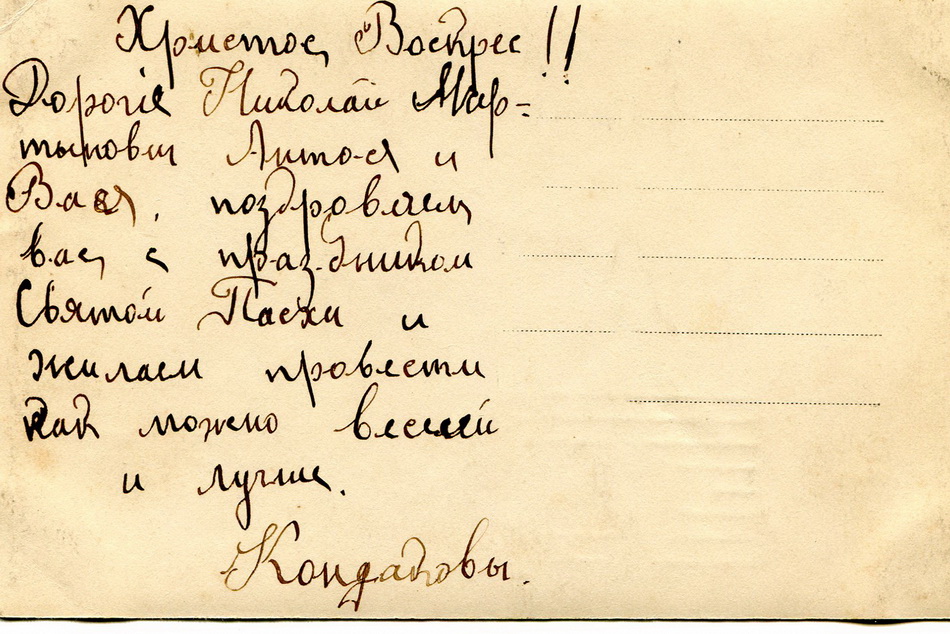 Христос Воскрес!!
Дорогіе Николай Мар-
тынович Антося и
Вася, поздровляем
вас с праздником
Святой Пасхи и
жилаем провести
как можно веселей
и лучше.
Кондаковы.